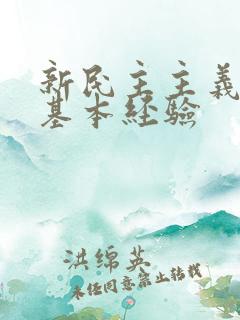 新民主主義
基本经验
洪绵英
未经同意禁止转载